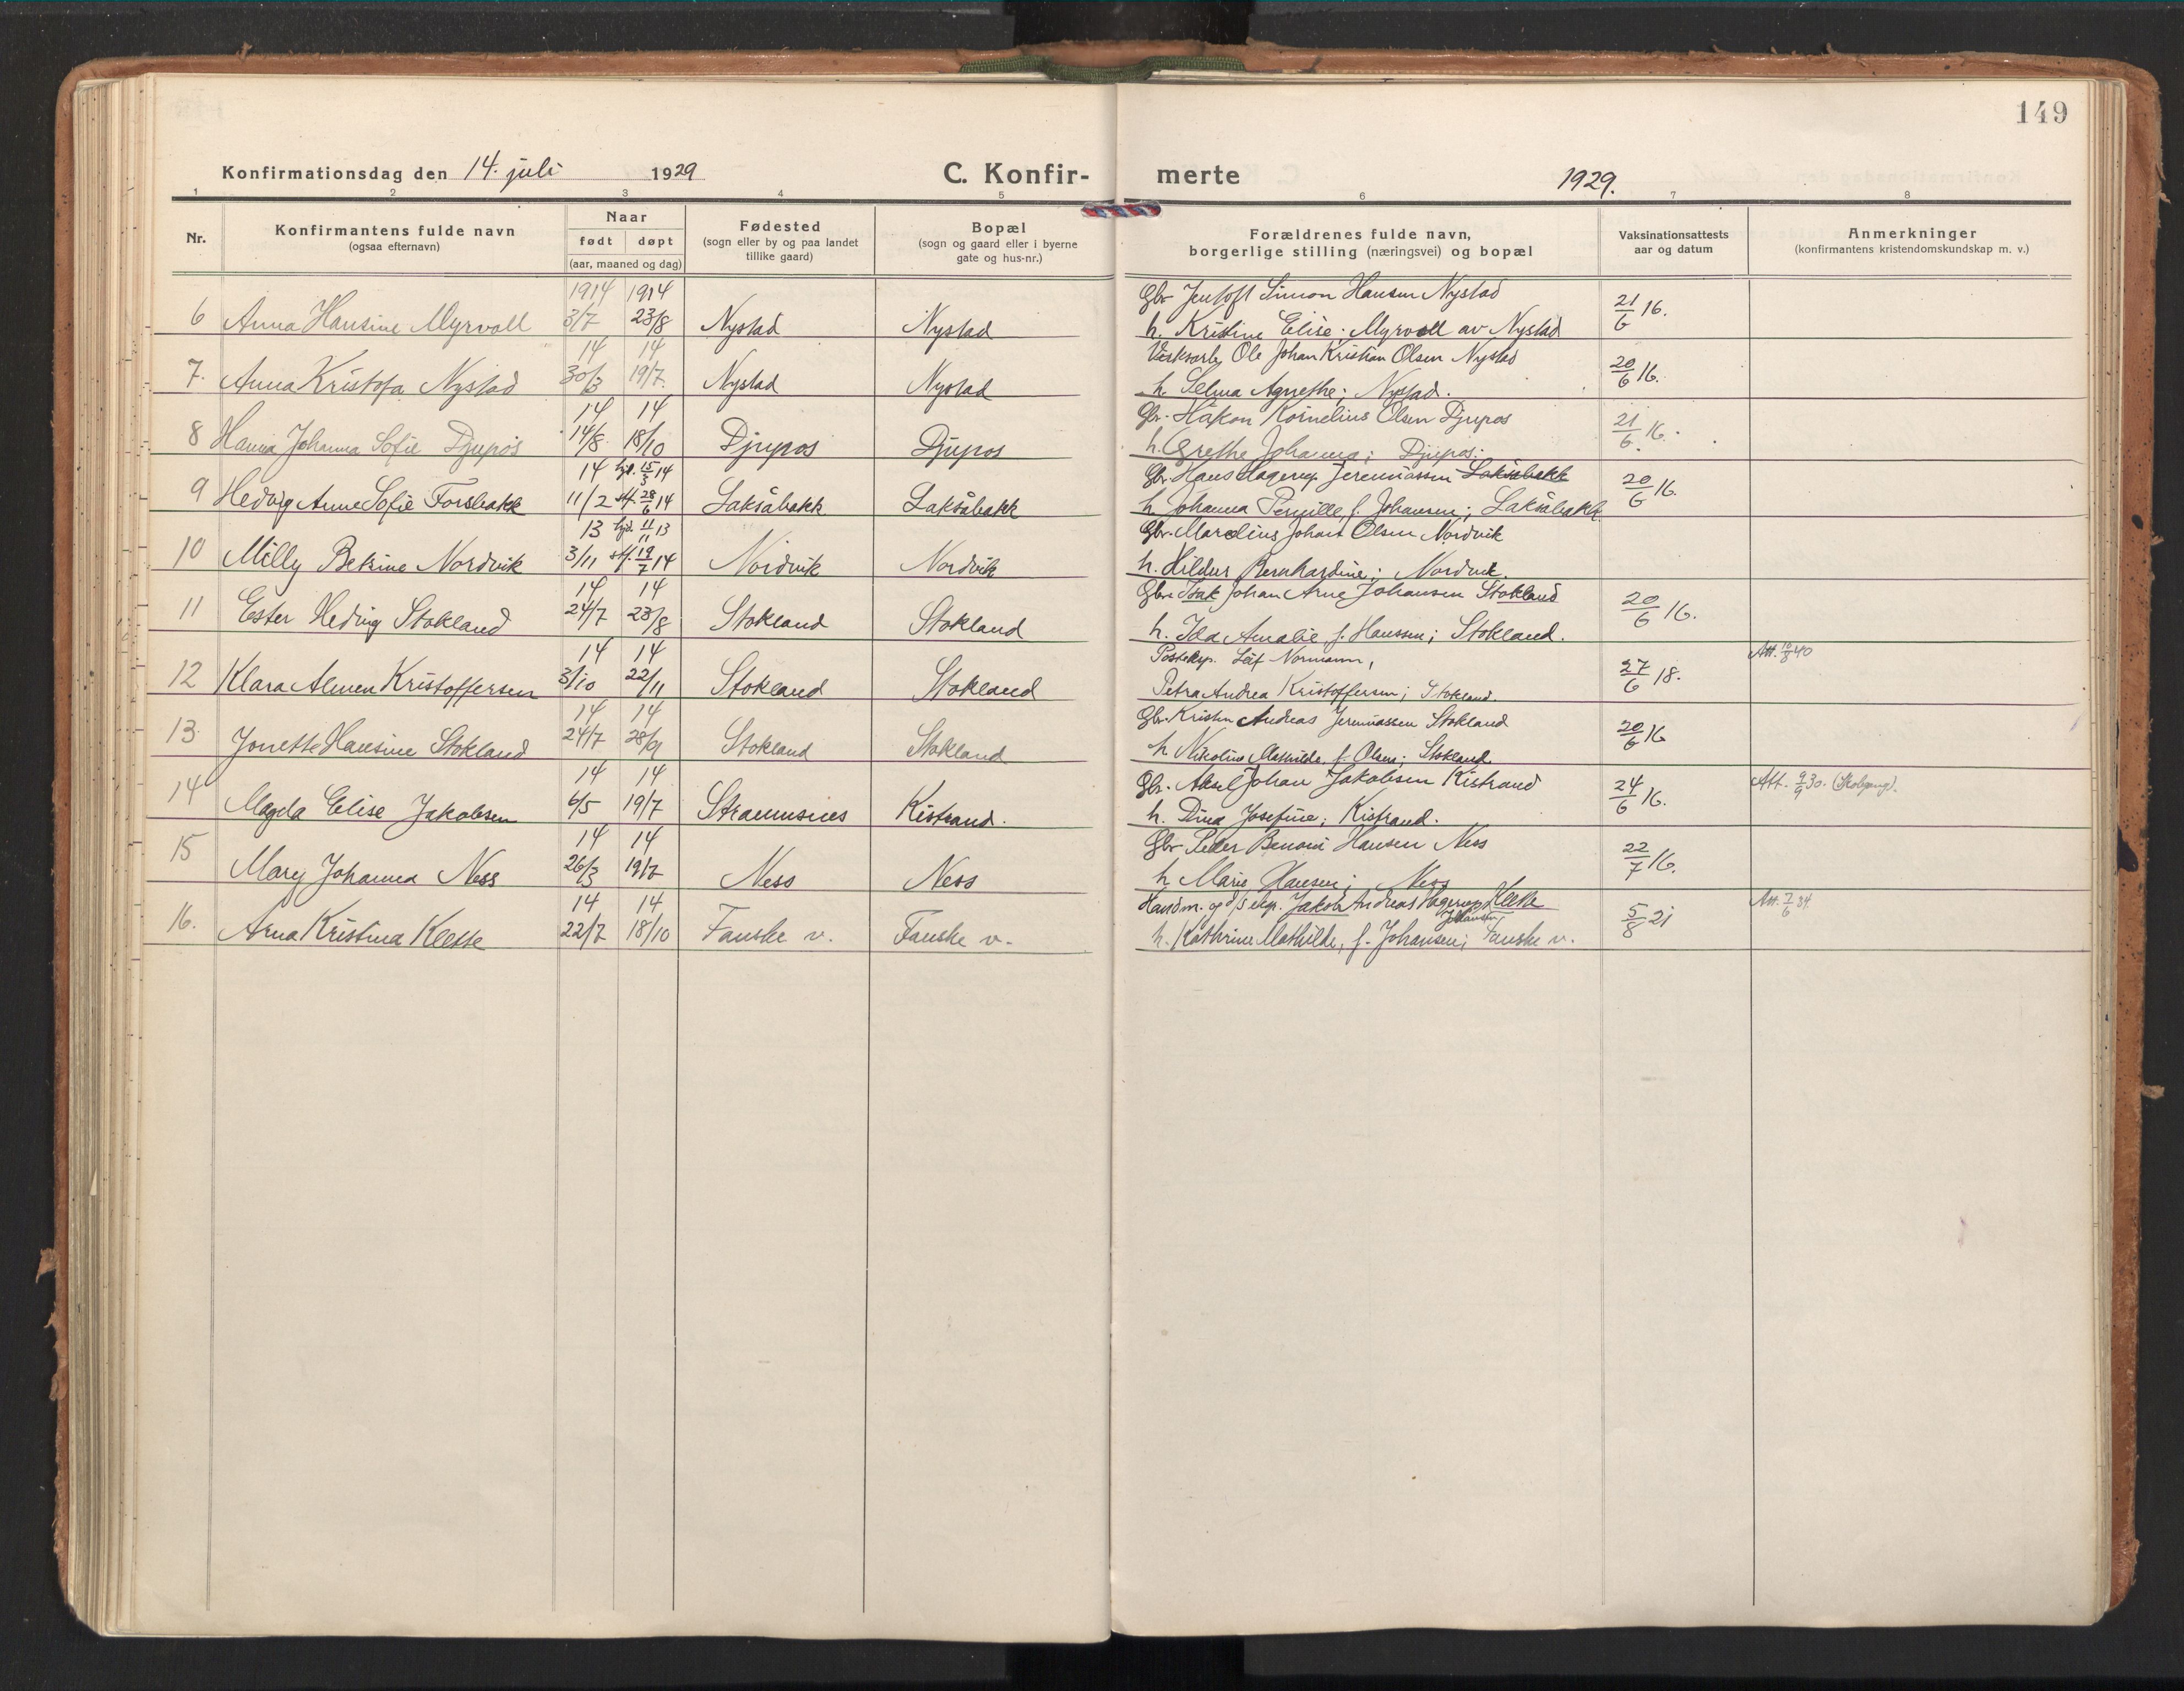 149
Konfirmationsdag den 14. juli 1929 C. Konfir- merte 1929.
1 2 3 4 5 6 7 8
Nr. Konfirmantens fulde navn (ogsaa efternavn) Naar født døpt (aar, maaned og dag) Fødested (sogn eller by og paa landet tillike gaard) Bopæl (sogn og gaard eller i byerne gate og hus-nr.) Forældrenes fulde navn, borgerlige stilling (næringsvei) og bopæl Vaksinationsattests aar og datum Anmerkninger (konfirmantens kristendomskundskap m. v.)
1914 1914 Gbr Jentoft Simon Hansen Nystad
6 Anna Hansine Myrvoll 3/7 23/8 Nystad Nystad h. Kristine Elise; Myrvoll av Nystad 21/6 16.
14 14 Ole Johan Kristian Olsen Nystad
7. Anna Kristofa Nystad 30/3 19/7. Nystad Nystad h. Selma Agnethe; Nystad. 20/6 16.
14 14 Gbr. Håkon Kornelius Olsen Djupos
8 Hanna Johanna Sofie Djupos 14/8. 18/10 Djupos Djupos h. Grethe Johanna; Djupos. 21/6. 16.
14 hjd. 15/3 14 Gbr. Hans Hagerup Jeremiassen Laksåbakk
9 Hedvig Anne Sofie Forsbakk 11/2 stf. 28/6 14 Laksåbakk Laksåbakk h. Johanna Pernille, f. Johansen; Laksåbakk. 20/6 16.
13 hjd. 11/11 13 Gbr. Marelius Johart Olsen Nordvik
10 Milly Betrine Nordvik 3/11 stf. 19/7 14 Nordvik Nordvik h. Hildur Bernhardine; Nordvik.
14 14 Gbr. Isak Johan Arne Johansen Stokland
11 Ester Hedvig Stokland 24/7 23/8 Stokland Stokland h. Ida Amalie f. Hanssen; Stokland. 20/6 16.
14 14 Posteksp. Leif Normann, Att. 10/8 40
12 Klara Almen Kristoffersen 3/10 22/11 Stokland Stokland Petra Andrea Kristoffersen; Stokland. 27/6 18.
14 14 Gbr. Kristen Andreas Jeremiassen Stokland
13. Jonette Hansine Stokland 24/7 28/9 Stokland Stokland h. Nikoline Mathilde, f. Olsen; Stokland 20/6 16
14 14 Gbr. Aksel Johan Jakobsen Kistrand
14 Magda Elise Jakobsen 6/5 19/7 Straumsnes Kistrand. h. Dina Josefine; Kistrand. 24/6 16. Att. 9/9 30. (Skolegang).
14 14 Gbr Peder Benoni Hansen Ness
15 Mary Johanna Ness 26/3 19/7 Ness Ness h. Marie Hansen; Ness 22/7 16.
14 14 Handm. og d/s eksp. Jakob Andreas Hagerup Klette Att. 7/6 34.
16. Arna Kristina Klette 22/7 18/10 Fauske v. Fauske v. h. Kathrine Mathilde, f. Johansen; Fauske v. 5/8 21